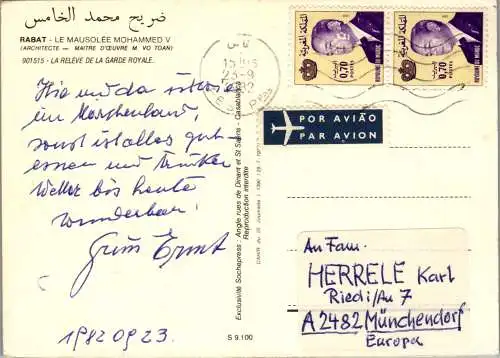 ضريح محمد الخامس
RABAT - LE MAUSOLÉE MOHAMMED V
(ARCHITECTE — MAITRE D'ŒUVRE M VO TOAN)
901515 - LA RELÈVE DE LA GARDE ROYALE.
Hie und da ist was
im Morgenland,
sonst ist alles gut-
essen und trinken
Wetter bis heute
wunderbar!
Gruß Ernst
1982 09 23.
Exclusivité Sochepress : Angle rues de Dinant et St Saëns - Casablanca
Reproduction interdite
S 9.100
23-9
0,70
POSTES
ROYAUME DU MAROC
المملكة المغربية
0,70
POSTES
ROYAUME DU MAROC
المملكة المغربية
POR AVIÃO
PAR AVION
An Fam.
HERRELE Karl
Riedi/Au 7
A 2482 Münchendorf
Europa